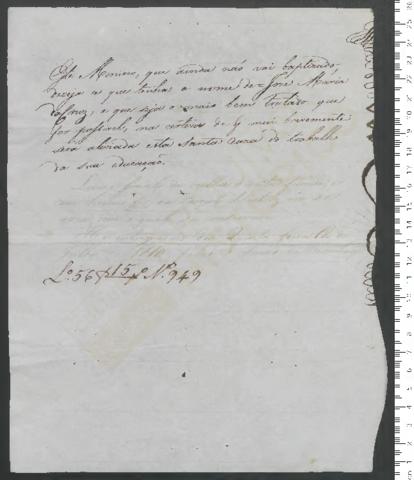 Este Menino, que ainda não vai baptizado,
deseja-se que tenha o nome de = José Maria
da Cruz, e que seja o mais bem tratado que
for possivel, na certeza de q mui brevemente
será aliviada esta Santa Casa do trabalho
da sua educação.
Lº 56 15 Nº 949